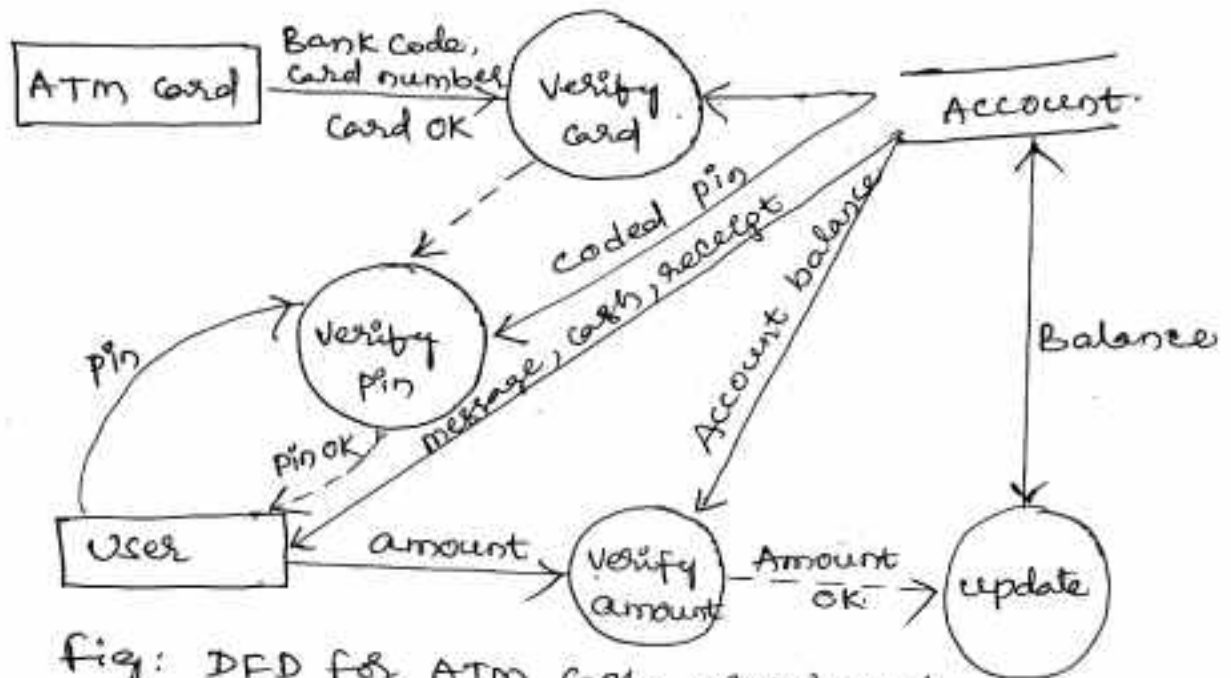 Bank Code,
Card number
ATM Card
Card OK
Verify
Card
Account.
coded pin
message, cash, receipt
Account balance
Balance
pin
Verify
pin
pin OK
User
amount
Verify
amount
Amount
OK
update
fig: DFD for ATM